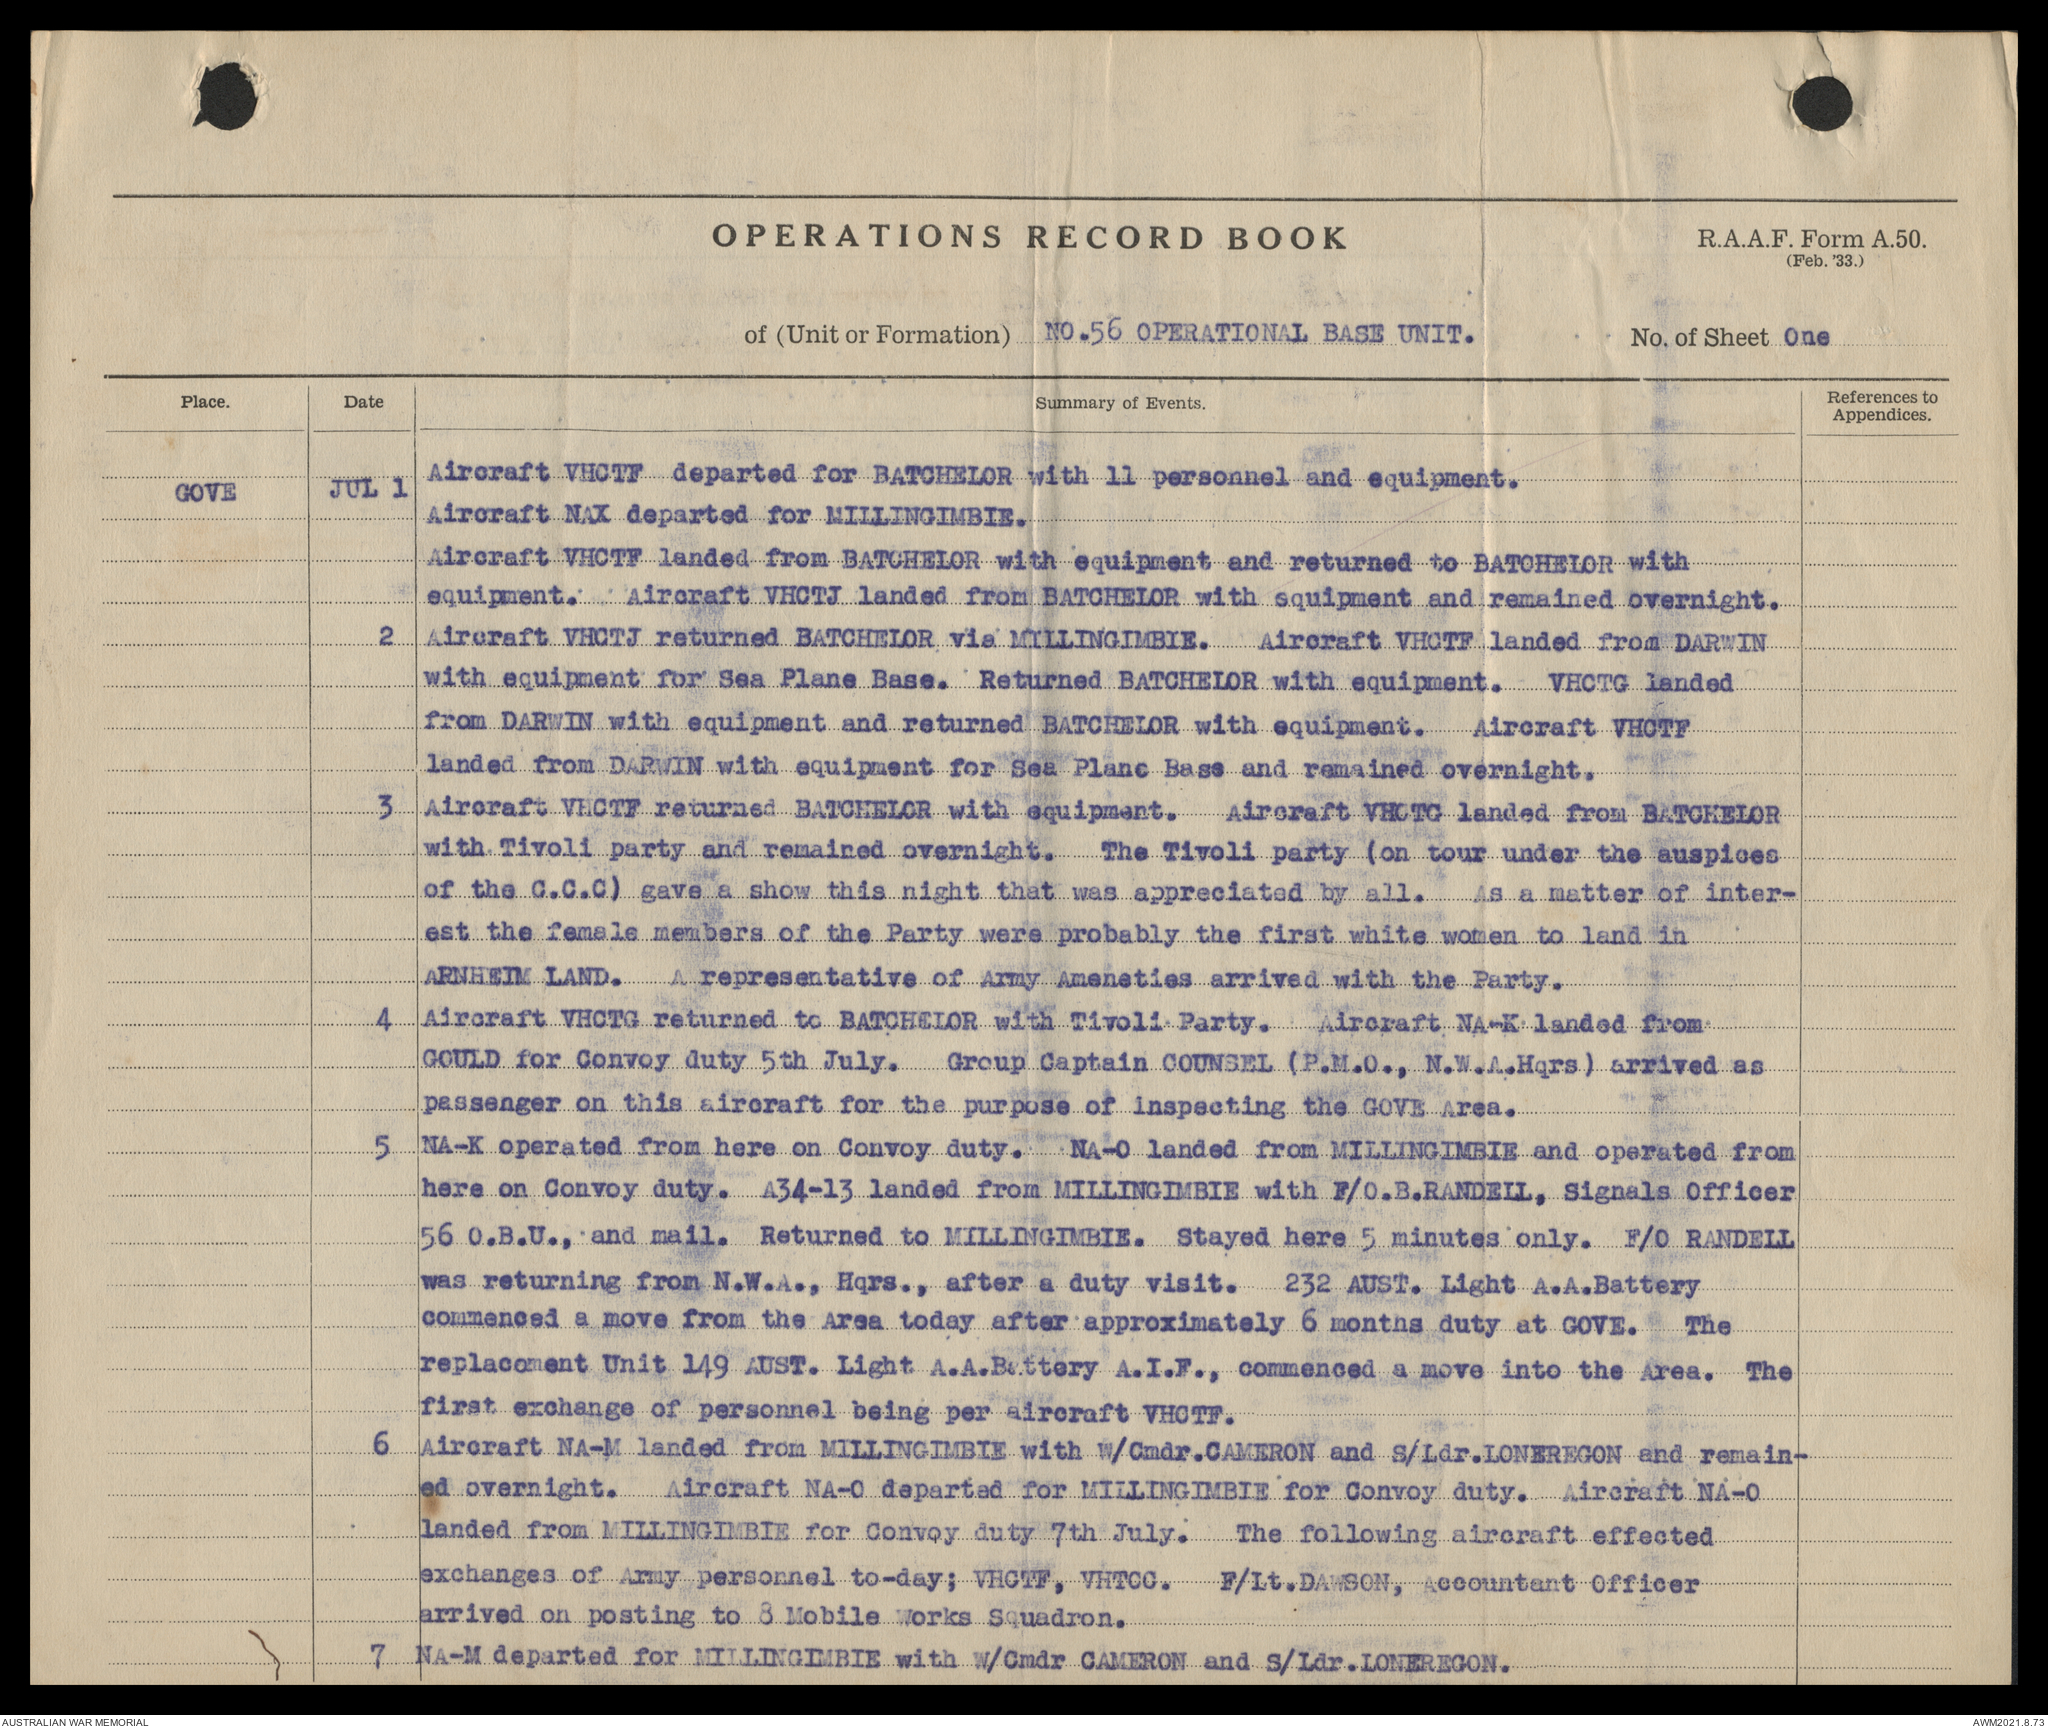 OPERATIONS RECORD BOOK
R.A.A.F. Form A.50.
(Feb. '33.)
of (Unit or Formation) NO.56 OPERATIONAL BASE UNIT.
No. of Sheet One
Place.
Date
Summary of Events.
References to
Appendices.
GOVE
JUL 1
Aircraft VHCTF departed for BATCHELOR with 11 personnel and equipment.
Aircraft NAX departed for MILLINGIMBIE.
Aircraft VHCTF landed from BATCHELOR with equipment and returned to BATCHELOR with
equipment. Aircraft VHCTJ landed from BATCHELOR with equipment and remained overnight.
2 Aircraft VHCTJ returned BATCHELOR via MILLINGIMBIE. Aircraft VHCTF landed from DARWIN
with equipment for Sea Plane Base. Returned BATCHELOR with equipment. VHCTG landed
from DARWIN with equipment and returned BATCHELOR with equipment. Aircraft VHCTF
landed from DARWIN with equipment for Sea Plane Base and remained overnight.
3 Aircraft VHCTF returned BATCHELOR with equipment. Aircraft VHCTG landed from BATCKELOR
with Tivoli party and remained overnight. The Tivoli party (on tour under the auspices
of the C.C.C) gave a show this night that was appreciated by all. As a matter of inter-
est the female members of the Party were probably the first white women to land in
ARNHEIM LAND. A representative of Army Ameneties arrived with the Party.
4 Aircraft VHCTG returned to BATCHELOR with Tivoli Party. Aircraft NA-K landed from
GOULD for Convoy duty 5th July. Group Captain COUNSEL (P.M.O., N.W.A.Hqrs) arrived as
passenger on this aircraft for the purpose of inspecting the GOVE Area.
5 NA-K operated from here on Convoy duty. NA-O landed from MILLINGIMBIE and operated from
here on Convoy duty. A34-13 landed from MILLINGIMBIE with F/O.B.RANDELL, Signals Officer
56 O.B.U., and mail. Returned to MILLINGIMBIE. Stayed here 5 minutes only. F/O RANDELL
was returning from N.W.A., Hqrs., after a duty visit. 232 AUST. Light A.A.Battery
commenced a move from the Area today after approximately 6 months duty at GOVE. The
replacement Unit 149 AUST. Light A.A.Battery A.I.F., commenced a move into the Area. The
first exchange of personnel being per aircraft VHCTF.
6 Aircraft NA-M landed from MILLINGIMBIE with W/Cmdr.CAMERON and S/Ldr.LONEREGON and remain-
ed overnight. Aircraft NA-O departed for MILLINGIMBIE for Convoy duty. Aircraft NA-O
landed from MILLINGIMBIE for Convoy duty 7th July. The following aircraft effected
exchanges of Army personnel to-day; VHCTF, VHTCC. F/Lt.DAWSON, Accountant Officer
arrived on posting to 8 Mobile Works Squadron.
7 NA-M departed for MILLINGIMBIE with W/Cmdr CAMERON and S/Ldr.LONEREGON.
AUSTRALIAN WAR MEMORIAL
AWM2021.8.73